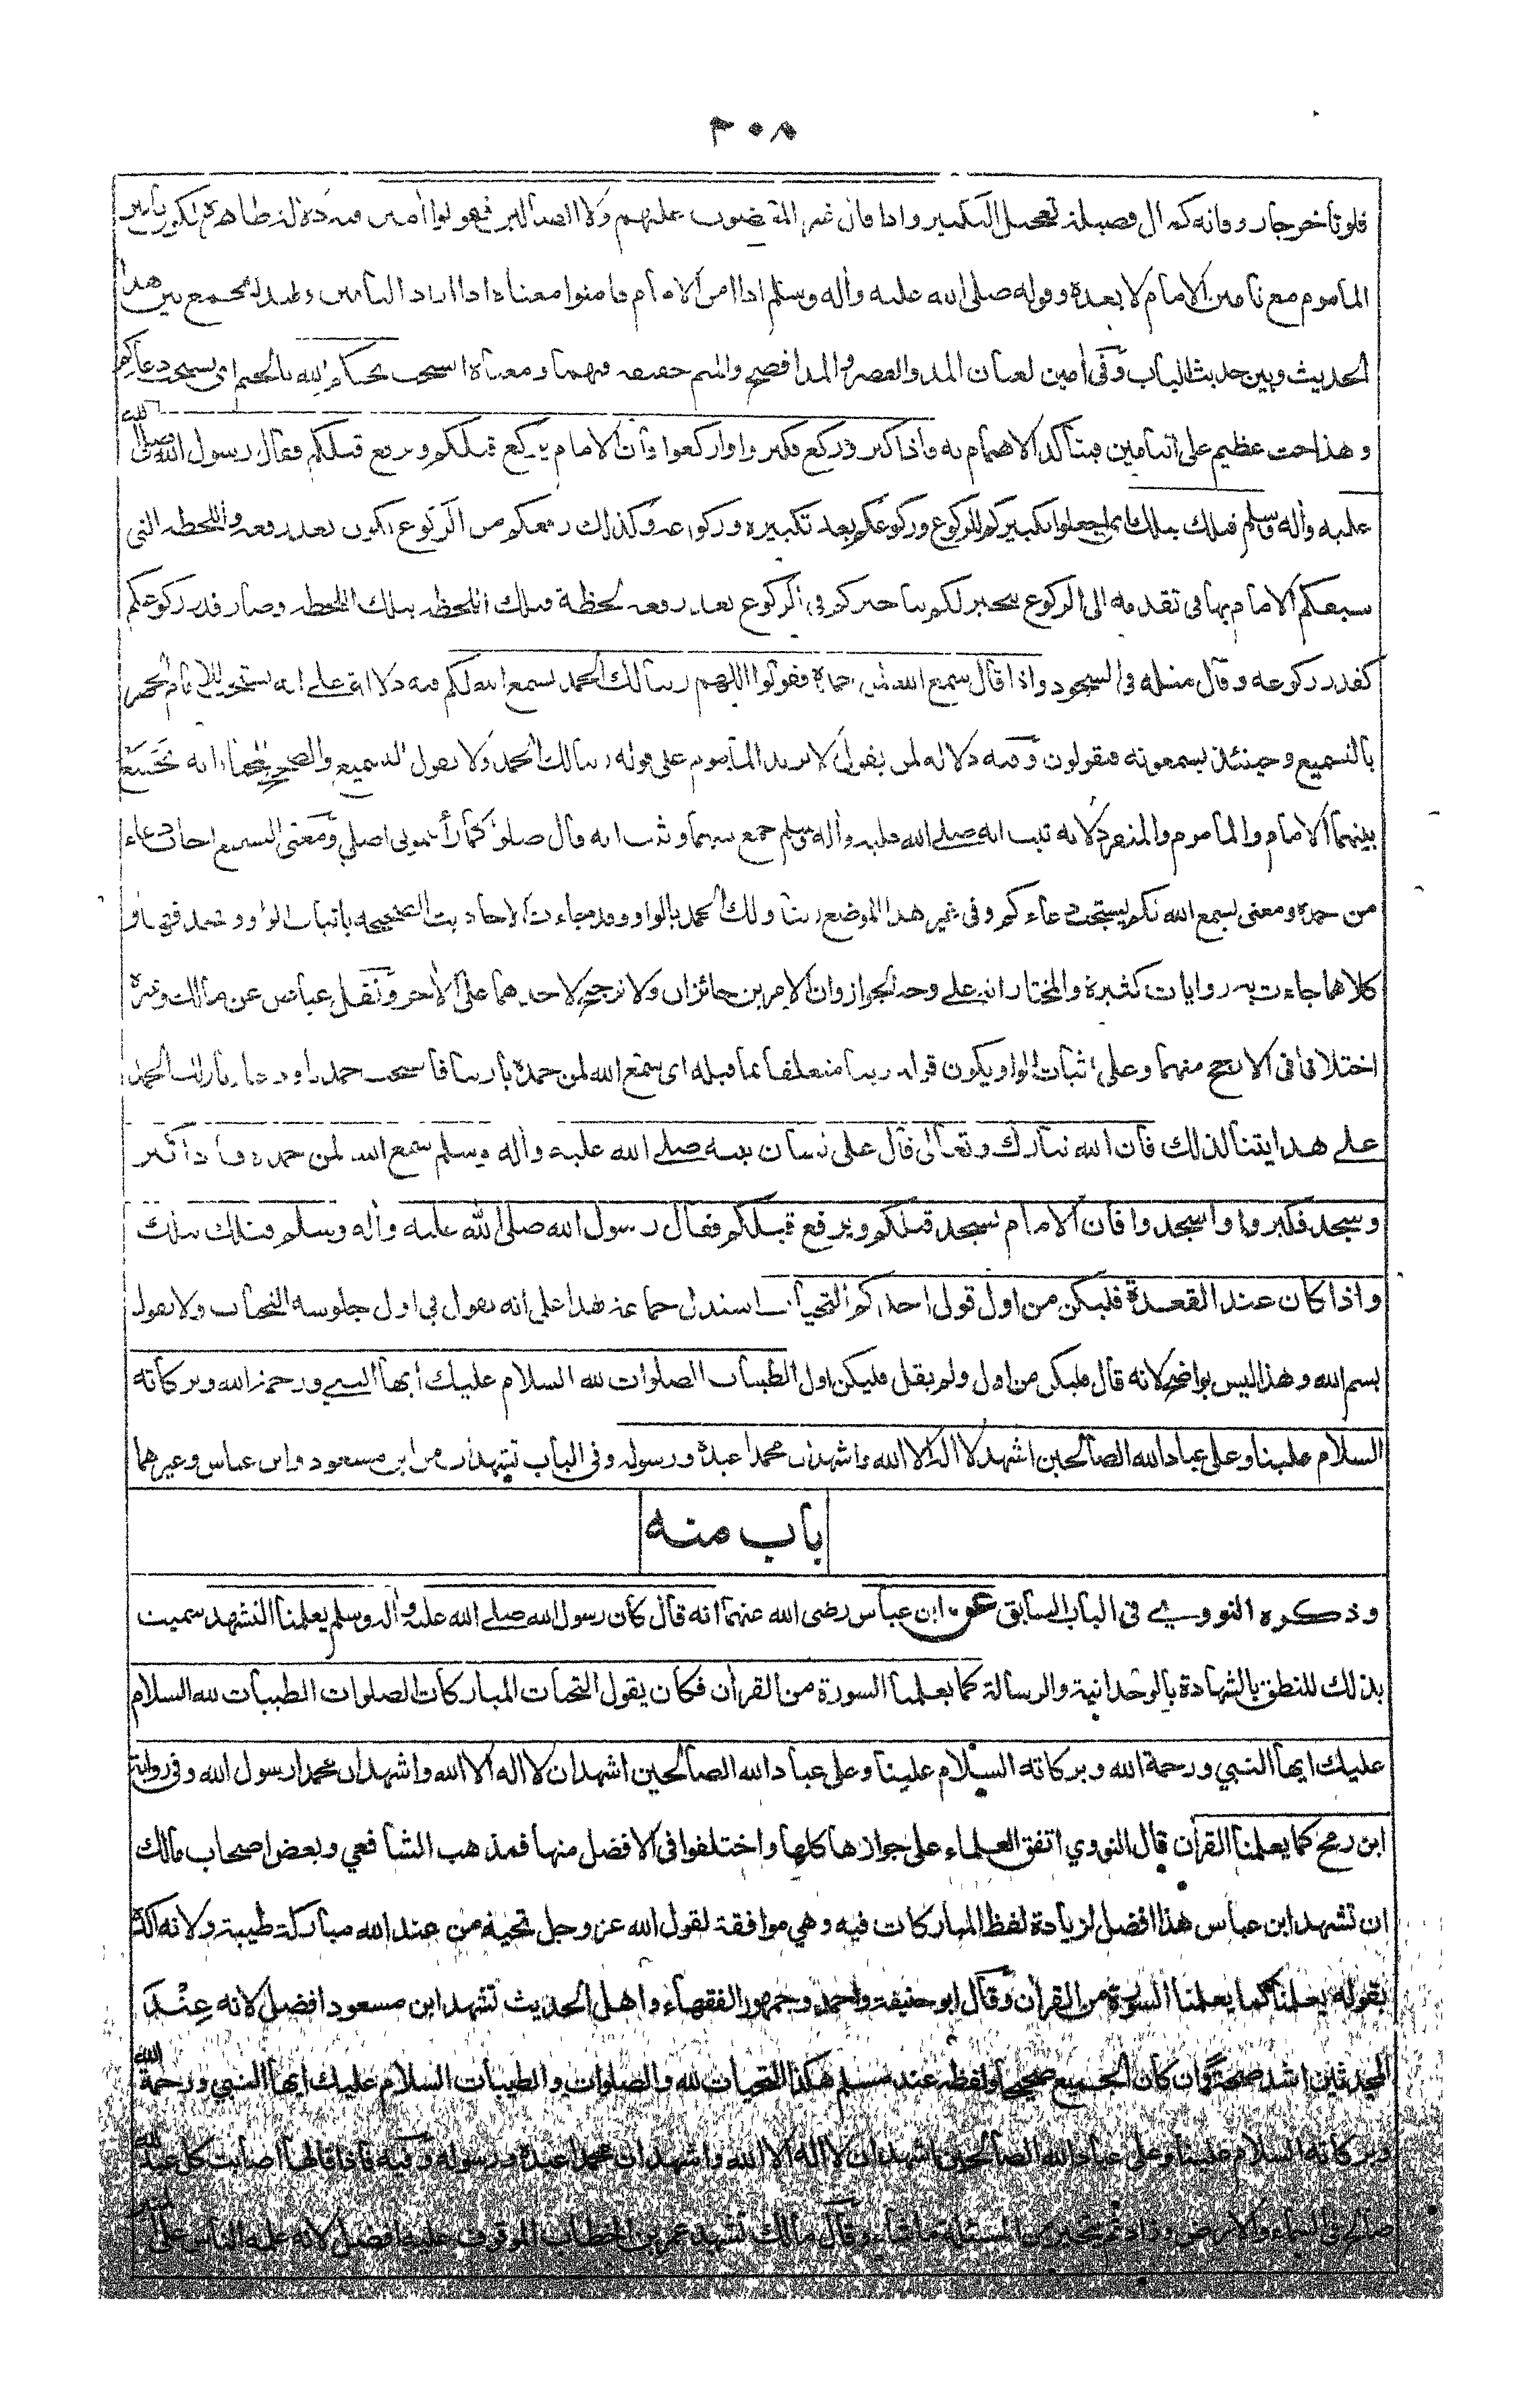 ٢٠٨
فلو تأخر جاز وفاته كمال فضيلة تعجيل التكبير واذا قال غير المغضوب عليهم ولا الضالين فقولوا أمين فيه دلالة ظاهرة لكون تأمين
المأموم مع تأمين الامام لا بعده وقوله صلى الله عليه وأله وسلم اذا امن الامام فامنوا معناه اذا اراد التأمين وطريق الجمع بين هذا
الحديث وبين حديث الباب وفى أمين لغتان المد والقصر والمد افصح والميم خفيفة فيهما ومعناه استجب يحبكم الله بالجيم اى يستجب دعاءكم
وهذا حث عظيم على التأمين فيتأكد الاهتمام به فاذا كبر وركع فكبروا واركعوا فأن الامام يركع قبلكم ويرفع قبلكم فقال رسول الله صلى الله
عليه وأله وسلم فتلك بتلك اجعلوا تكبيركم للركوع وركوعكم بعد تكبيره وركوعه وكذلك رفعكم من الركوع يكون بعد رفعه واللحظة التى
سبقكم الامام بها فى تقدمه الى الركوع تنجبر لكم بتأخيركم فى الركوع بعد رفعه لحظة فتلك اللحظة بتلك اللحظة وصار قدر ركوعكم
كقدر ركوعه وقال مثله فى السجود واذا قال سمع الله لمن حمده فقولوا اللهم ربنا لك الحمد يسمع الله لكم فيه دلالة على انه يستحب للامام الجهر
بالتسميع وحينئذ يسمعونه فيقولون وفيه دلالة لمن يقول لا يزيد المأموم على قوله ربنا لك الحمد ولا يقول التسميع والصحيح المختار انه يجمع
بينهما الامام والمأموم والمنفرد لانه ثبت انه صلى الله عليه وأله وسلم جمع بينهما وثبت انه قال صلوا كما رأيتمونى اصلى ومعنى السمع اجاب دعاء
من حمده ومعنى يسمع الله لكم يستجب دعاءكم وفى غير هذا الموضع ربنا ولك الحمد بالواو وقد جاءت الاحاديث الصحيحة باثبات الواو وبحذفها و
كلاهما جاءت به روايات كثيرة والمختار انه على وجه الجواز وان الامرين جائزان ولا ترجيح لاحدهما على الأخر ونقل عياض عن مالك وغيره
اختلافا فى الارجح منهما وعلى اثبات الواو يكون قوله ربنا متعلقا بما قبله اى سمع الله لمن حمده يا ربنا فاستجب حمدنا ودعاءنا ولك الحمد
على هدايتنا لذلك فان الله تبارك وتعالى قال على لسان نبيه صلى الله عليه وأله وسلم سمع الله لمن حمده واذا كبر
وسجد فكبروا واسجدوا فان الامام يسجد قبلكم ويرفع قبلكم فقال رسول الله صلى الله عليه وأله وسلم فتلك بتلك
واذا كان عند القعدة فليكن من اول قول احدكم التحيات استدل جماعة بهذا على انه يقول فى اول جلوسه التحيات ولا يقول
بسم الله وهذا ليس بواضح لانه قال فليكن من اول ولم يقل فليكن اول الطيبات الصلوات لله السلام عليك أيها النبى ورحمة الله وبركاته
السلام علينا وعلى عباد الله الصالحين اشهد لا اله الا الله واشهد ان محمدا عبده ورسوله وفى الباب تشهد من ابن مسعود وابن عباس وغيرهما
باب منه
وذكره النووى فى الباب السابق عن ابن عباس رضى الله عنهما انه قال كان رسول الله صلى الله عليه وأله وسلم يعلمنا التشهد سميت
بذلك للنطق بالشهادة بالوحدانية والرسالة كما يعلمنا السورة من القرأن فكان يقول التحيات المباركات الصلوات الطيبات لله السلام
عليك ايها النبي ورحمة الله وبركاته السلام علينا وعلى عباد الله الصالحين اشهد ان لا اله الا الله واشهد ان محمدا رسول الله وفى رواية
ابن رمح كما يعلمنا القرأن قال النووي اتفق العلماء على جوازها كلها واختلفوا فى الافضل منها فمذهب الشافعي وبعض اصحاب مالك
ان تشهد ابن عباس هذا افضل لزيادة لفظ المباركات فيه وهي موافقة لقول الله عز وجل تحية من عند الله مباركة طيبة ولانه اكده
بقوله يعلمنا كما يعلمنا السورة من القرأن وقال ابو حنيفة واحمد وجمهور الفقهاء واهل الحديث تشهد ابن مسعود افضل لانه عند
المحدثين اشد صحة وان كان الجميع صحيحا ولفظه عند مسلم هكذا التحيات لله والصلوات والطيبات السلام عليك ايها النبي ورحمة الله
وبركاته السلام علينا وعلى عباد الله الصالحين اشهد ان لا اله الا الله واشهد ان محمدا عبده ورسوله وفيه فاذا قالها اصابت كل عبد لله
صالح فى السماء والارض وزاد ثم يتخير من المسئلة ما شاء وقال مالك تشهد عمر بن الخطاب الموقوف عليه افضل لانه علمه الناس على المنبر